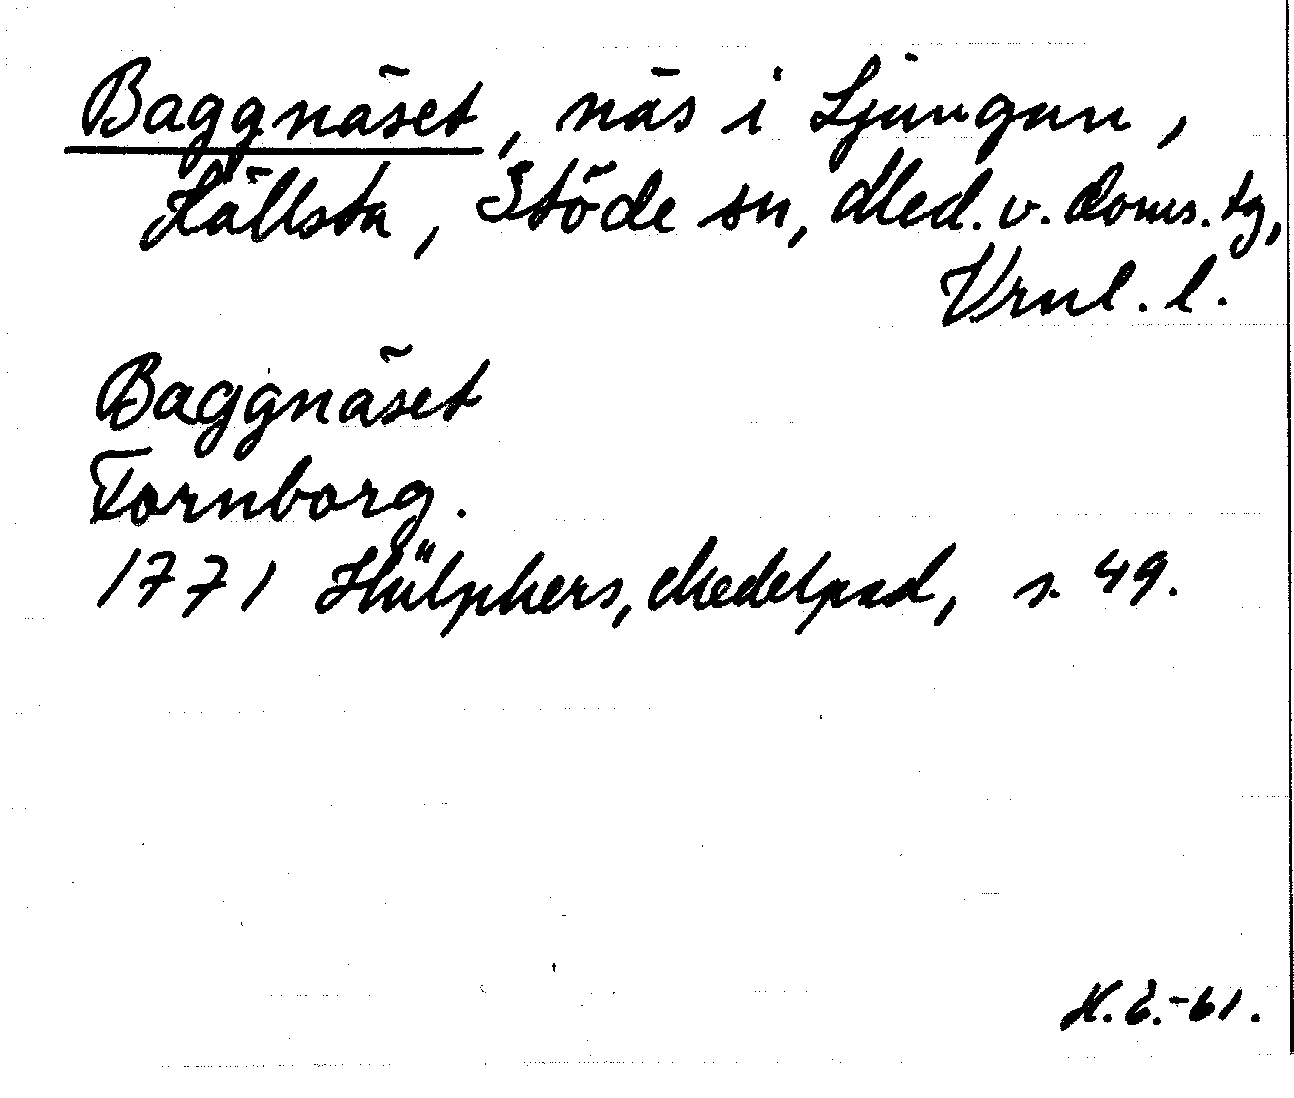 Baggnäset, näs i Ljungan,
Källsta, Stöde sn, Med. v. doms. tg,
Vrnl. l.
Baggnäset
Fornborg.
1771 Hülphers, Medelpad, s. 49.
N. E.-61.